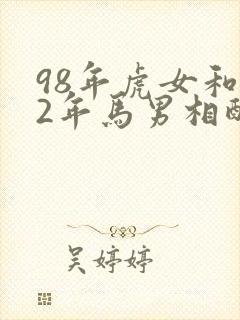 98年虎女和
2年馬男相配
吴婷婷